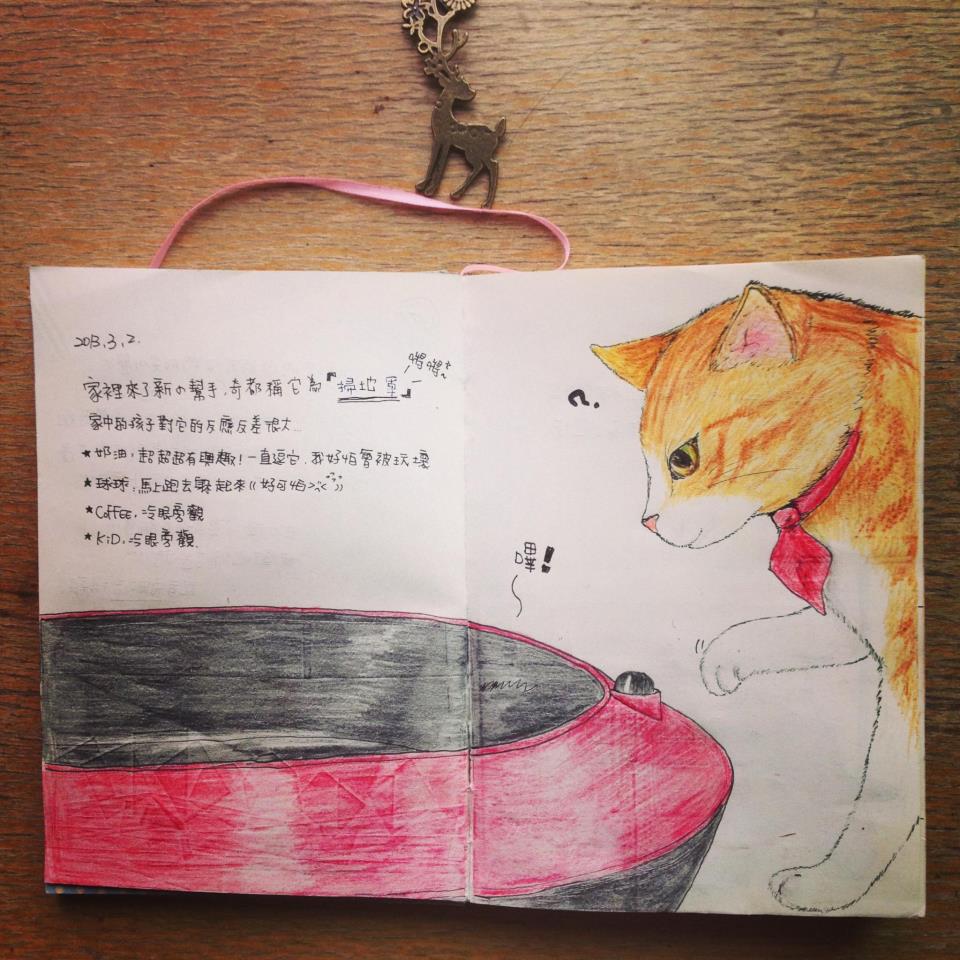 2013.3.2.
家裡來了新の幫手，奇都稱它為『掃地軍』
家中的孩子對它的反應反差很大...
★奶油，超超超有興趣！一直逗它，我好怕會被玩壞
★球球：馬上跑去躲起來((好可怕>"<))
★Coffee，冷眼旁觀
★KiD，冷眼旁觀.
?
嗶!